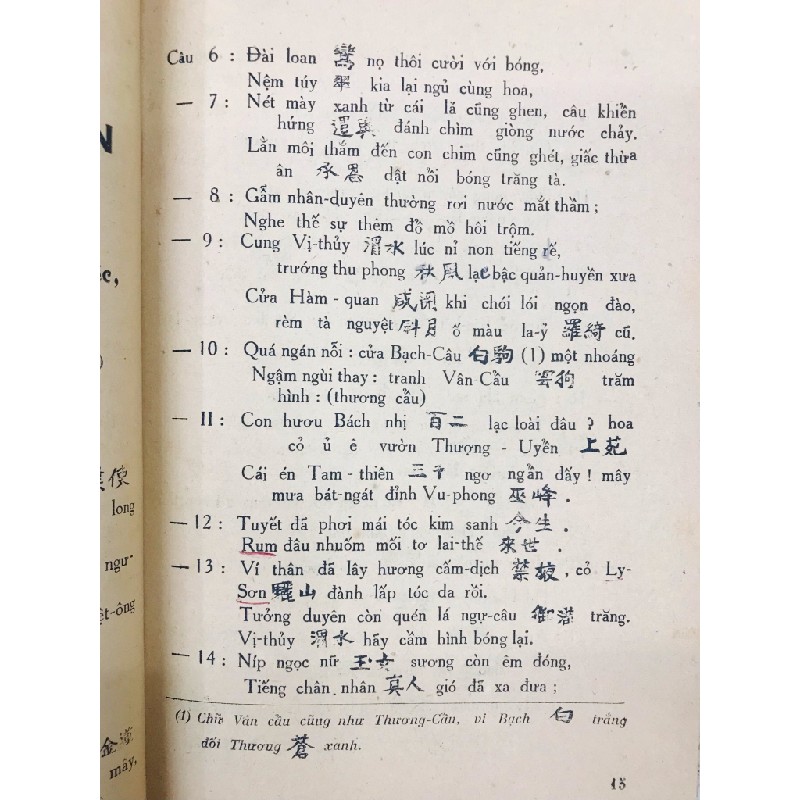 Câu 6 : Đài loan 鸞 nọ thôi cười với bóng,
Nệm túy 翠 kia lại ngủ cùng hoa,
— 7 : Nét mày xanh từ cái lá cũng ghen, câu khiển
hứng 遣興 đánh chìm giòng nước chảy.
Lằn môi thắm đến con chim cũng ghét, giấc thừa
ân 承恩 dật nồi bóng trăng tà.
— 8 : Gẫm nhân-duyên thường rơi nước mắt thầm ;
Nghe thế sự thêm đổ mồ hôi trộm.
— 9 : Cung Vị-thủy 渭水 lúc nỉ non tiếng rế,
trướng thu phong 秋風 lạc bậc quản-huyền xưa
Cửa Hàm - quan 咸関 khi chói lói ngọn đào,
rèm tà nguyệt 斜月 ố màu la-ỷ 羅綺 cũ.
— 10 : Quá ngán nỗi : cửa Bạch-Câu 白駒 (1) một nhoáng
Ngậm ngùi thay : tranh Vân-Cẩu 雲狗 trăm
hình : (thương cẩu)
— 11 : Con hươu Bách nhị 百二 lạc loài đâu ? hoa
cỏ ủ ê vườn Thượng - Uyển 上苑
Cái én Tam - thiên 三千 ngơ ngẩn đấy ! mây
mưa bát-ngát đỉnh Vu-phong 巫峰 .
— 12 : Tuyết đã phơi mái tóc kim sanh 今生 .
Rum đâu nhuốm mối tơ lai-thế 來世 .
— 13 : Ví thân đã lây hương cấm-dịch 禁掖 , cỏ Ly-
Sơn 驪山 đành lấp tóc da rồi.
Tưởng duyên còn quén lá ngự-câu 御溝 trăng.
Vị-thủy 渭水 hãy cầm hình bóng lại.
— 14 : Níp ngọc nữ 玉女 sương còn êm đóng,
Tiếng chân nhân 真人 gió đã xa đưa ;
(1) Chữ Vân cẩu cũng như Thương-Cẩu, vì Bạch 白 trắng
đối Thương 蒼 xanh.
15
N
c,
)
像
long
ngư-
ệt-ông
金
mây,